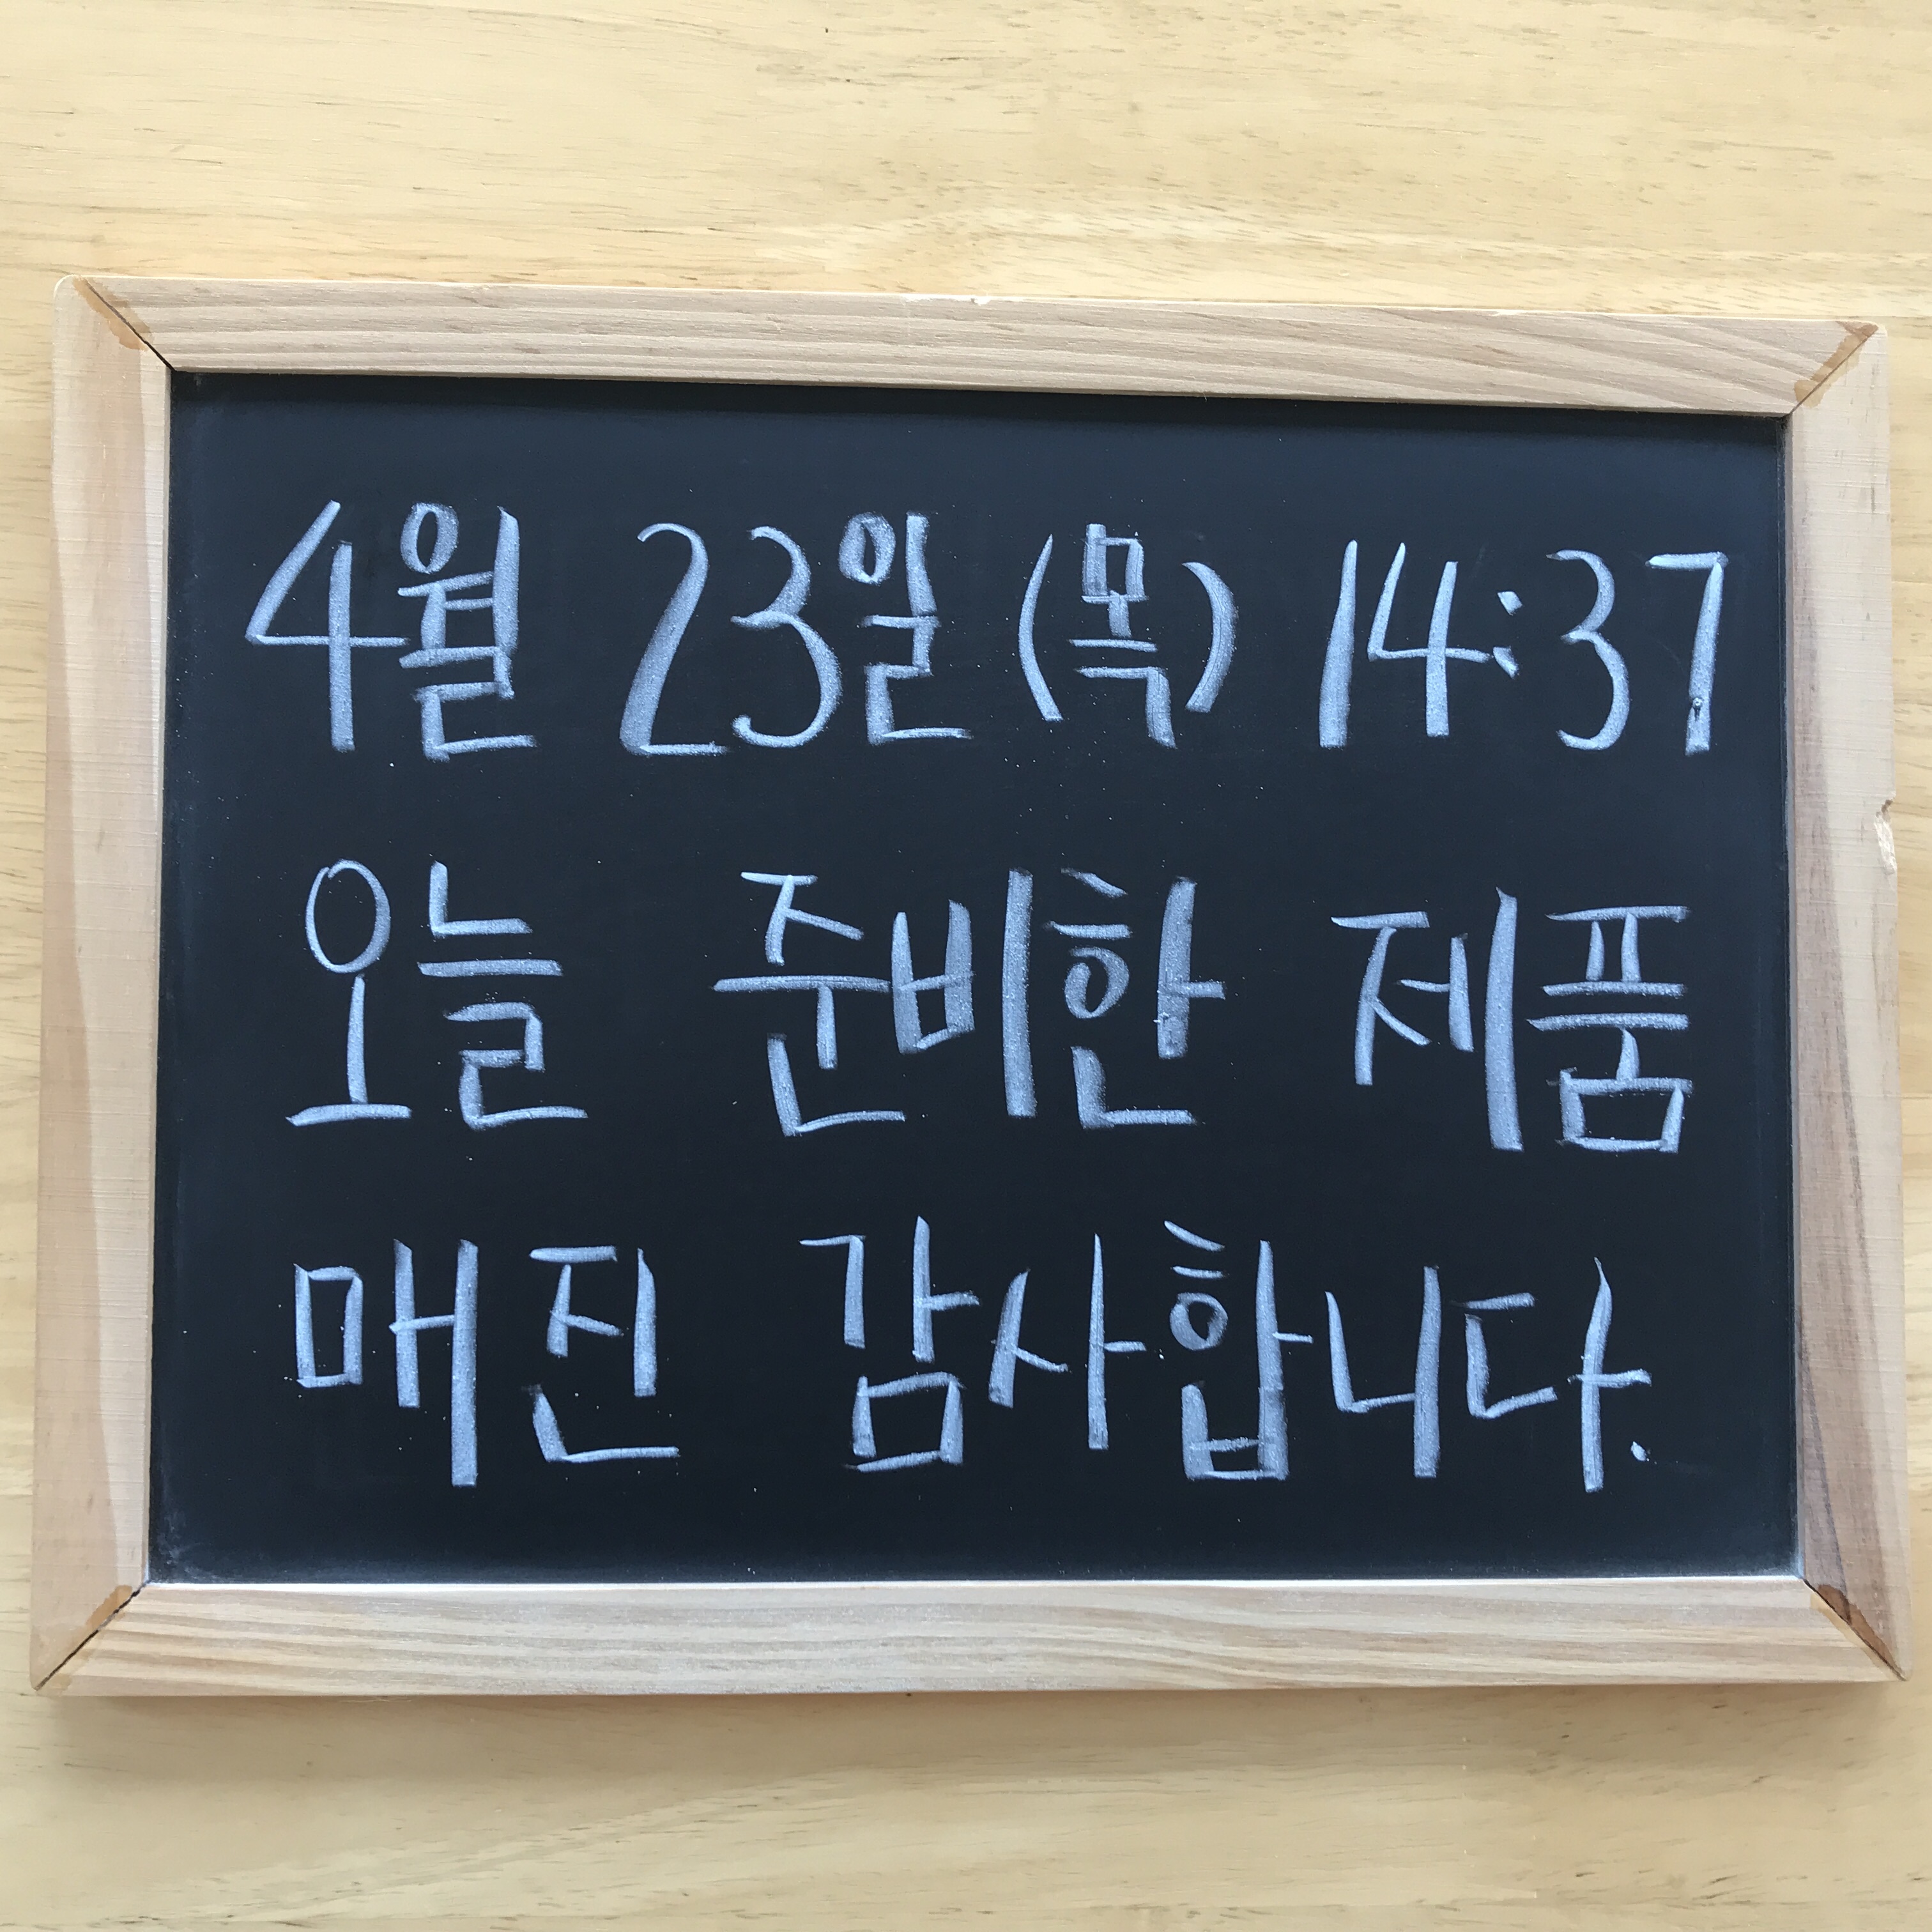 4월 23일 (목) 14:37
오늘 준비한 제품
매진 감사합니다.